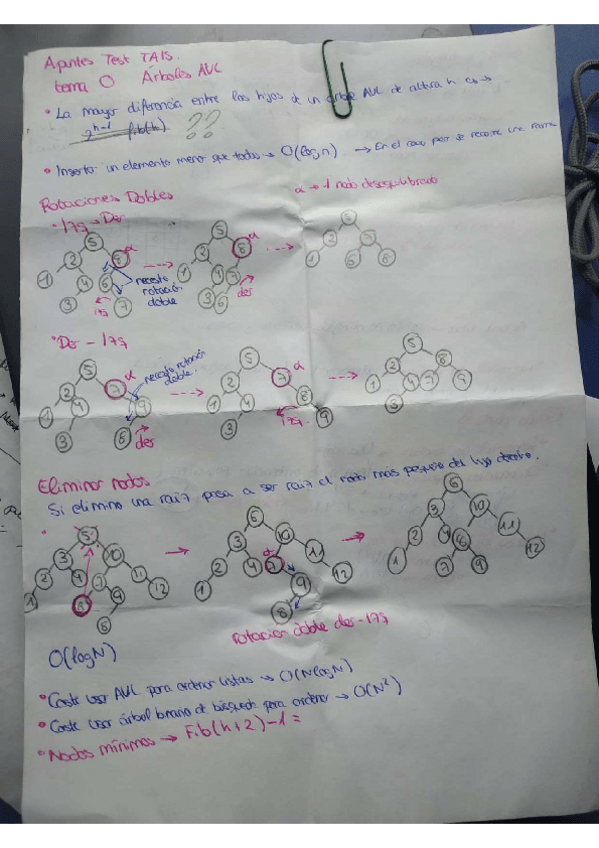 Apuntes Test TAIS.
tema 0 Árboles AVL
• La mayor diferencia entre los hijos de un árbol AVL de altura h es →
2^h-1 fib(h) ??
• Insertar un elemento menor que todos → O(log n) → En el caso peor se recorre una
Rotaciones Dobles
α → 1 nodo desequilibrado
- Izq → Der
5 5 5
2 8 α 2 8 α 2 7
1 4 6 1 4 7 1
3 7 3 6
necesito
rotación
doble
izq
der
• Der - Izq
5 5 5
2 7 α 2 7 α 2 8
1 4 9 1 4 8 1 4 7 9
3 8 3 9 3
necesito rotación
doble.
der
izq.
Eliminar nodos
Si elimino una raiz pasa a ser raiz el nodo más pequeño del hijo derecho.
5 6 6
3 10 3 10 3 10
2 4 7 11 2 4 7 11 2 4 11
1 6 9 12 1 9 12 1 7 9 12
8 8
α
rotación doble der-izq
O(log N)
• Coste usar AVL para ordenar listas → O(N log N)
• Coste usar árbol binario de búsqueda para ordenar → O(N²)
• Nodos mínimos → Fib(h+2)-1 =